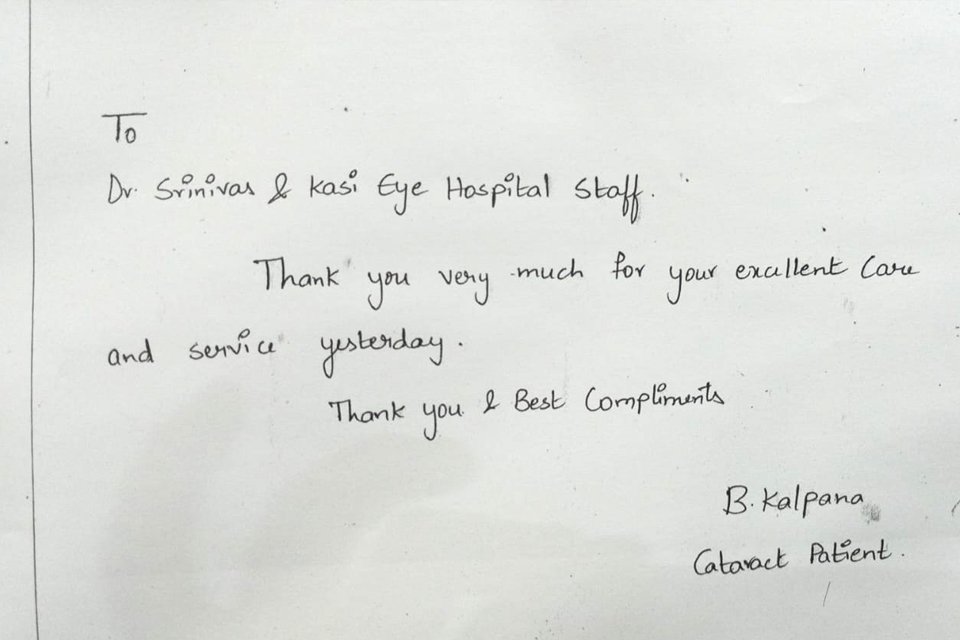 To
Dr. Srinivas & Kasi Eye Hospital Staff.
Thank you very much for your excellent Care
and service yesterday.
Thank you & Best Compliments
B. Kalpana
Cataract Patient.